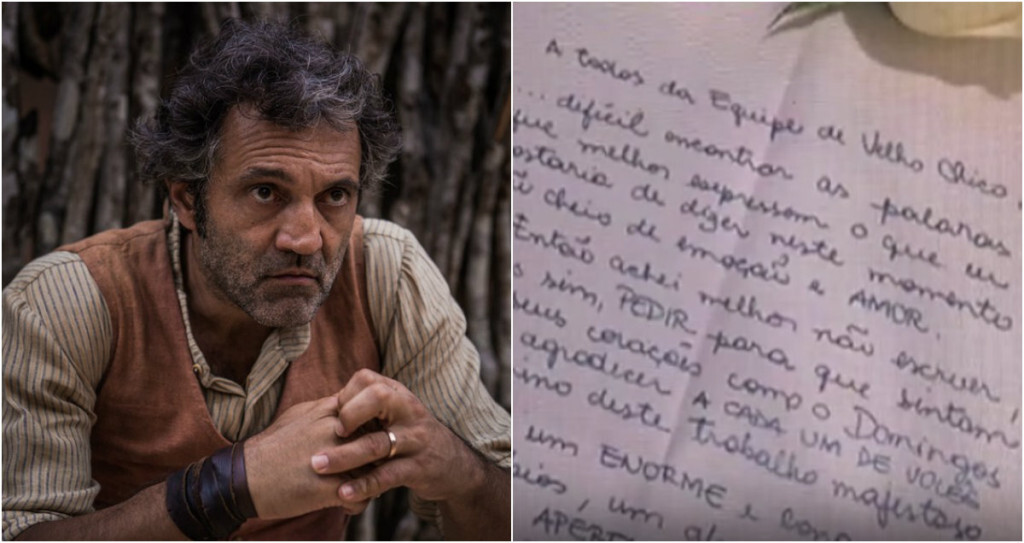 A todos da Equipe de Velho Chico.
... difícil encontrar as palavras
que melhor expressem o que eu
ostaria de dizer neste momento
cheio de emoção e AMOR.
Então achei melhor não escrever,
sim, PEDIR para que sintam
seus corações como o Domingos
agradecer A CADA UM DE VOCÊS
ino deste trabalho majestoso
um ENORME e
um